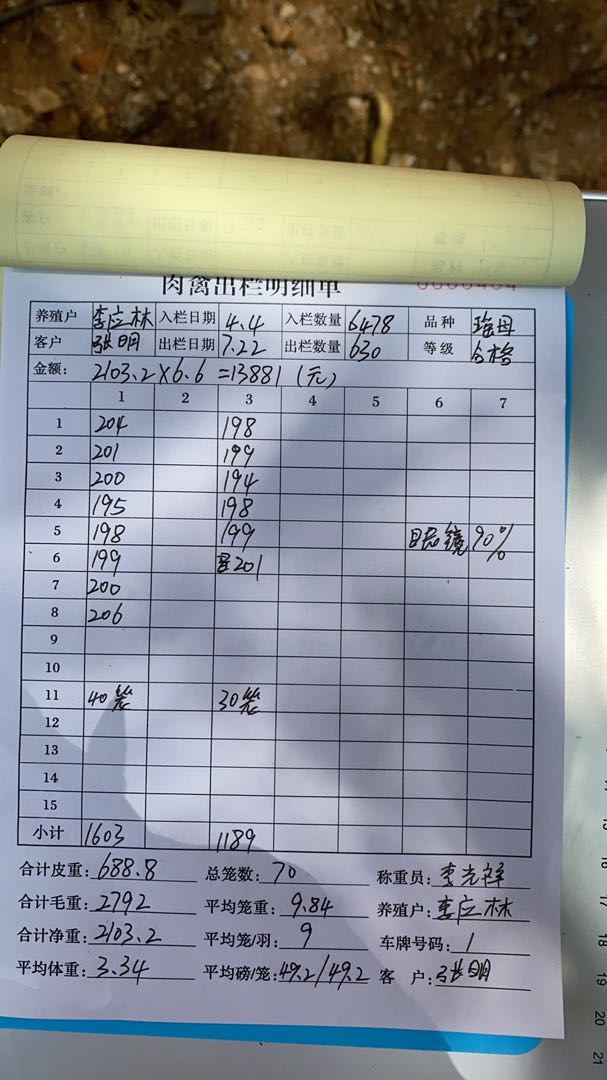 肉禽出栏明细单
养殖户 李应林 入栏日期 4.4 入栏数量 6478 品种 瑶母
客户 张明 出栏日期 7.22 出栏数量 630 等级 合格
金额: 2103.2×6.6=13881(元)
1 2 3 4 5 6 7
1 204 198
2 201 199
3 200 194
4 195 198
5 198 199 眼镜 90%
6 199 201
7 200
8 206
9
10
11 40笼 30笼
12
13
14
15
小计 1603 1189
合计皮重: 688.8 总笼数: 70 称重员: 李光祥
合计毛重: 2792 平均笼重: 9.84 养殖户: 李应林
合计净重: 2103.2 平均笼/羽: 9 车牌号码: 1
平均体重: 3.34 平均磅/笼: 49.2/49.2 客户: 张明
15
16
17
18
19
20
21